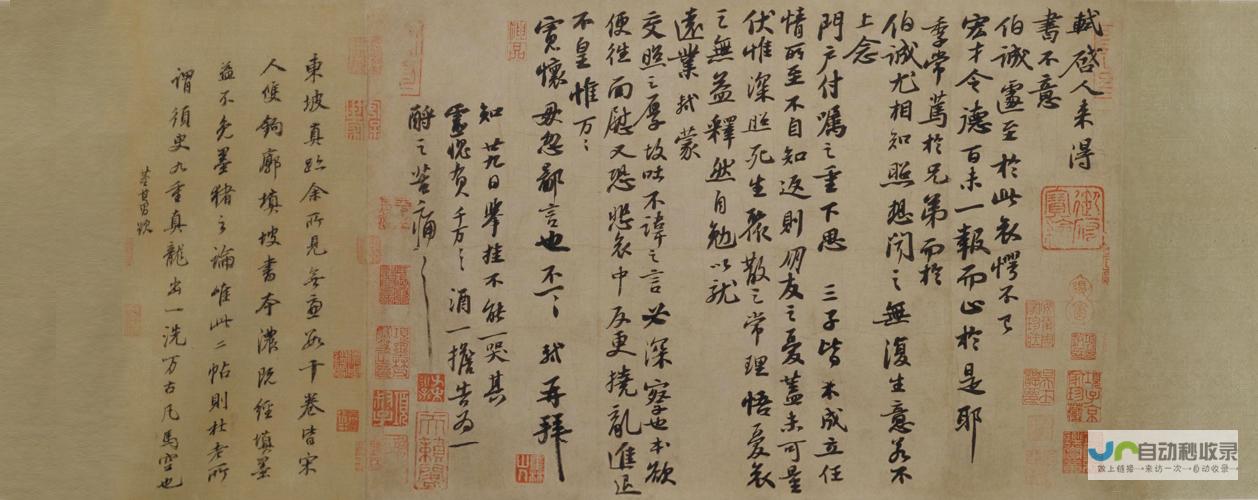 軾啓人来得
書不意
伯誠遽至於此哀愕不已
宏才令德百未一報而止於是耶
季常篤於兄弟而於
伯誠尤相知照想聞之無復生意若不
上念
門户付嘱之重下思 三子皆未成立任
情所至不自知返則朋友之憂蓋未可量
伏惟深照死生聚散之常理悟憂哀
之無益釋然自勉以就
遠業軾蒙
交照之厚故吐不諱之言必深察也本欲
便往面慰又恐悲哀中反更撓亂進退
不皇惟万々
寛懷毋忽鄙言也不一々 軾再拜
知廿九日擧挂不能一哭其
靈愧負千万々酒一擔告為一
酹之苦痛々
東坡真跡余所見無慮數十卷皆宋
人雙鉤廓填坡書本濃既經填墨
益不免墨猪之論唯此二帖則杜老所
謂須臾九重真龍出一洗万古凡馬空也
董其昌題
自动秒收录
做上链接→来访一次→自动收录